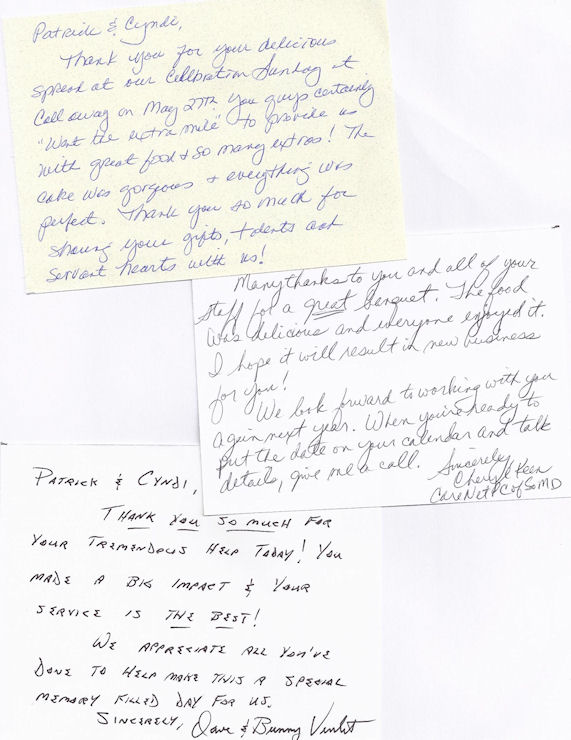 Patrick & Cyndi,
Thank you for your delicious
spread at our Celebration Sunday at
Callaway on May 27th. You guys certainly
"Went the extra mile" to provide us
with great food & so many extras! The
cake was gorgeous & everything was
perfect. Thank you so much for
sharing your gifts, talents and
servant hearts with us!
Many thanks to you and all of your
staff for a great banquet. The food
was delicious and everyone enjoyed it.
I hope it will result in new business
for you!
We look forward to working with you
again next year. When you're ready to
put the date on your calendar and talk
details, give me a call. Sincerely,
Cheryl Keen
CareNet PC of SoMD
PATRICK & CYNDI,
THANK YOU SO MUCH FOR
YOUR TREMENDOUS HELP TODAY! YOU
MADE A BIG IMPACT & YOUR
SERVICE IS THE BEST!
WE APPRECIATE ALL YOU'VE
DONE TO HELP MAKE THIS A SPECIAL
MEMORY FILLED DAY FOR US.
SINCERELY, Dave & Bunny